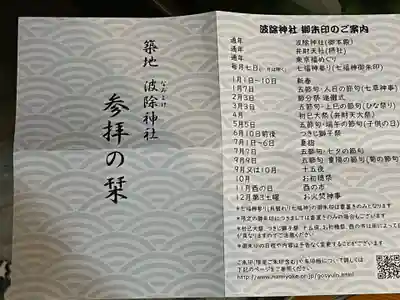 築地 波除神社
なみよけ
参拝の栞
波除神社 御朱印のご案内
通年 波除神社(御本殿)
通年 弁財天社(摂社)
通年 東京福めぐり
毎月七日 七福神巡り(七福神御朱印)
1月1日~10日 新春
1月7日 五節句・人日の節句(七草神事)
2月3日 節分祭 追儺式
3月3日 五節句・上巳の節句(ひな祭り)
4月 初巳大祭(弁財天大祭)
5月5日 五節句・端午の節句(子供の日)
6月10日前後 つきじ獅子祭
7月1日~6日 夏詣
7月7日 五節句・七夕の節句
9月9日 五節句・重陽の節句(菊の節句)
9月又は10月 十五夜
10月 お初穂祭
11月酉の日 酉の市
12月第3土曜 お火焚神事
*御朱印の日程や内容は予告なく変更することがございます
ご朱印(限定ご朱印含む)や名印帳について詳しくは
下記のページをご参照ください
http://www.namiyoke.or.jp/gosyuin.html